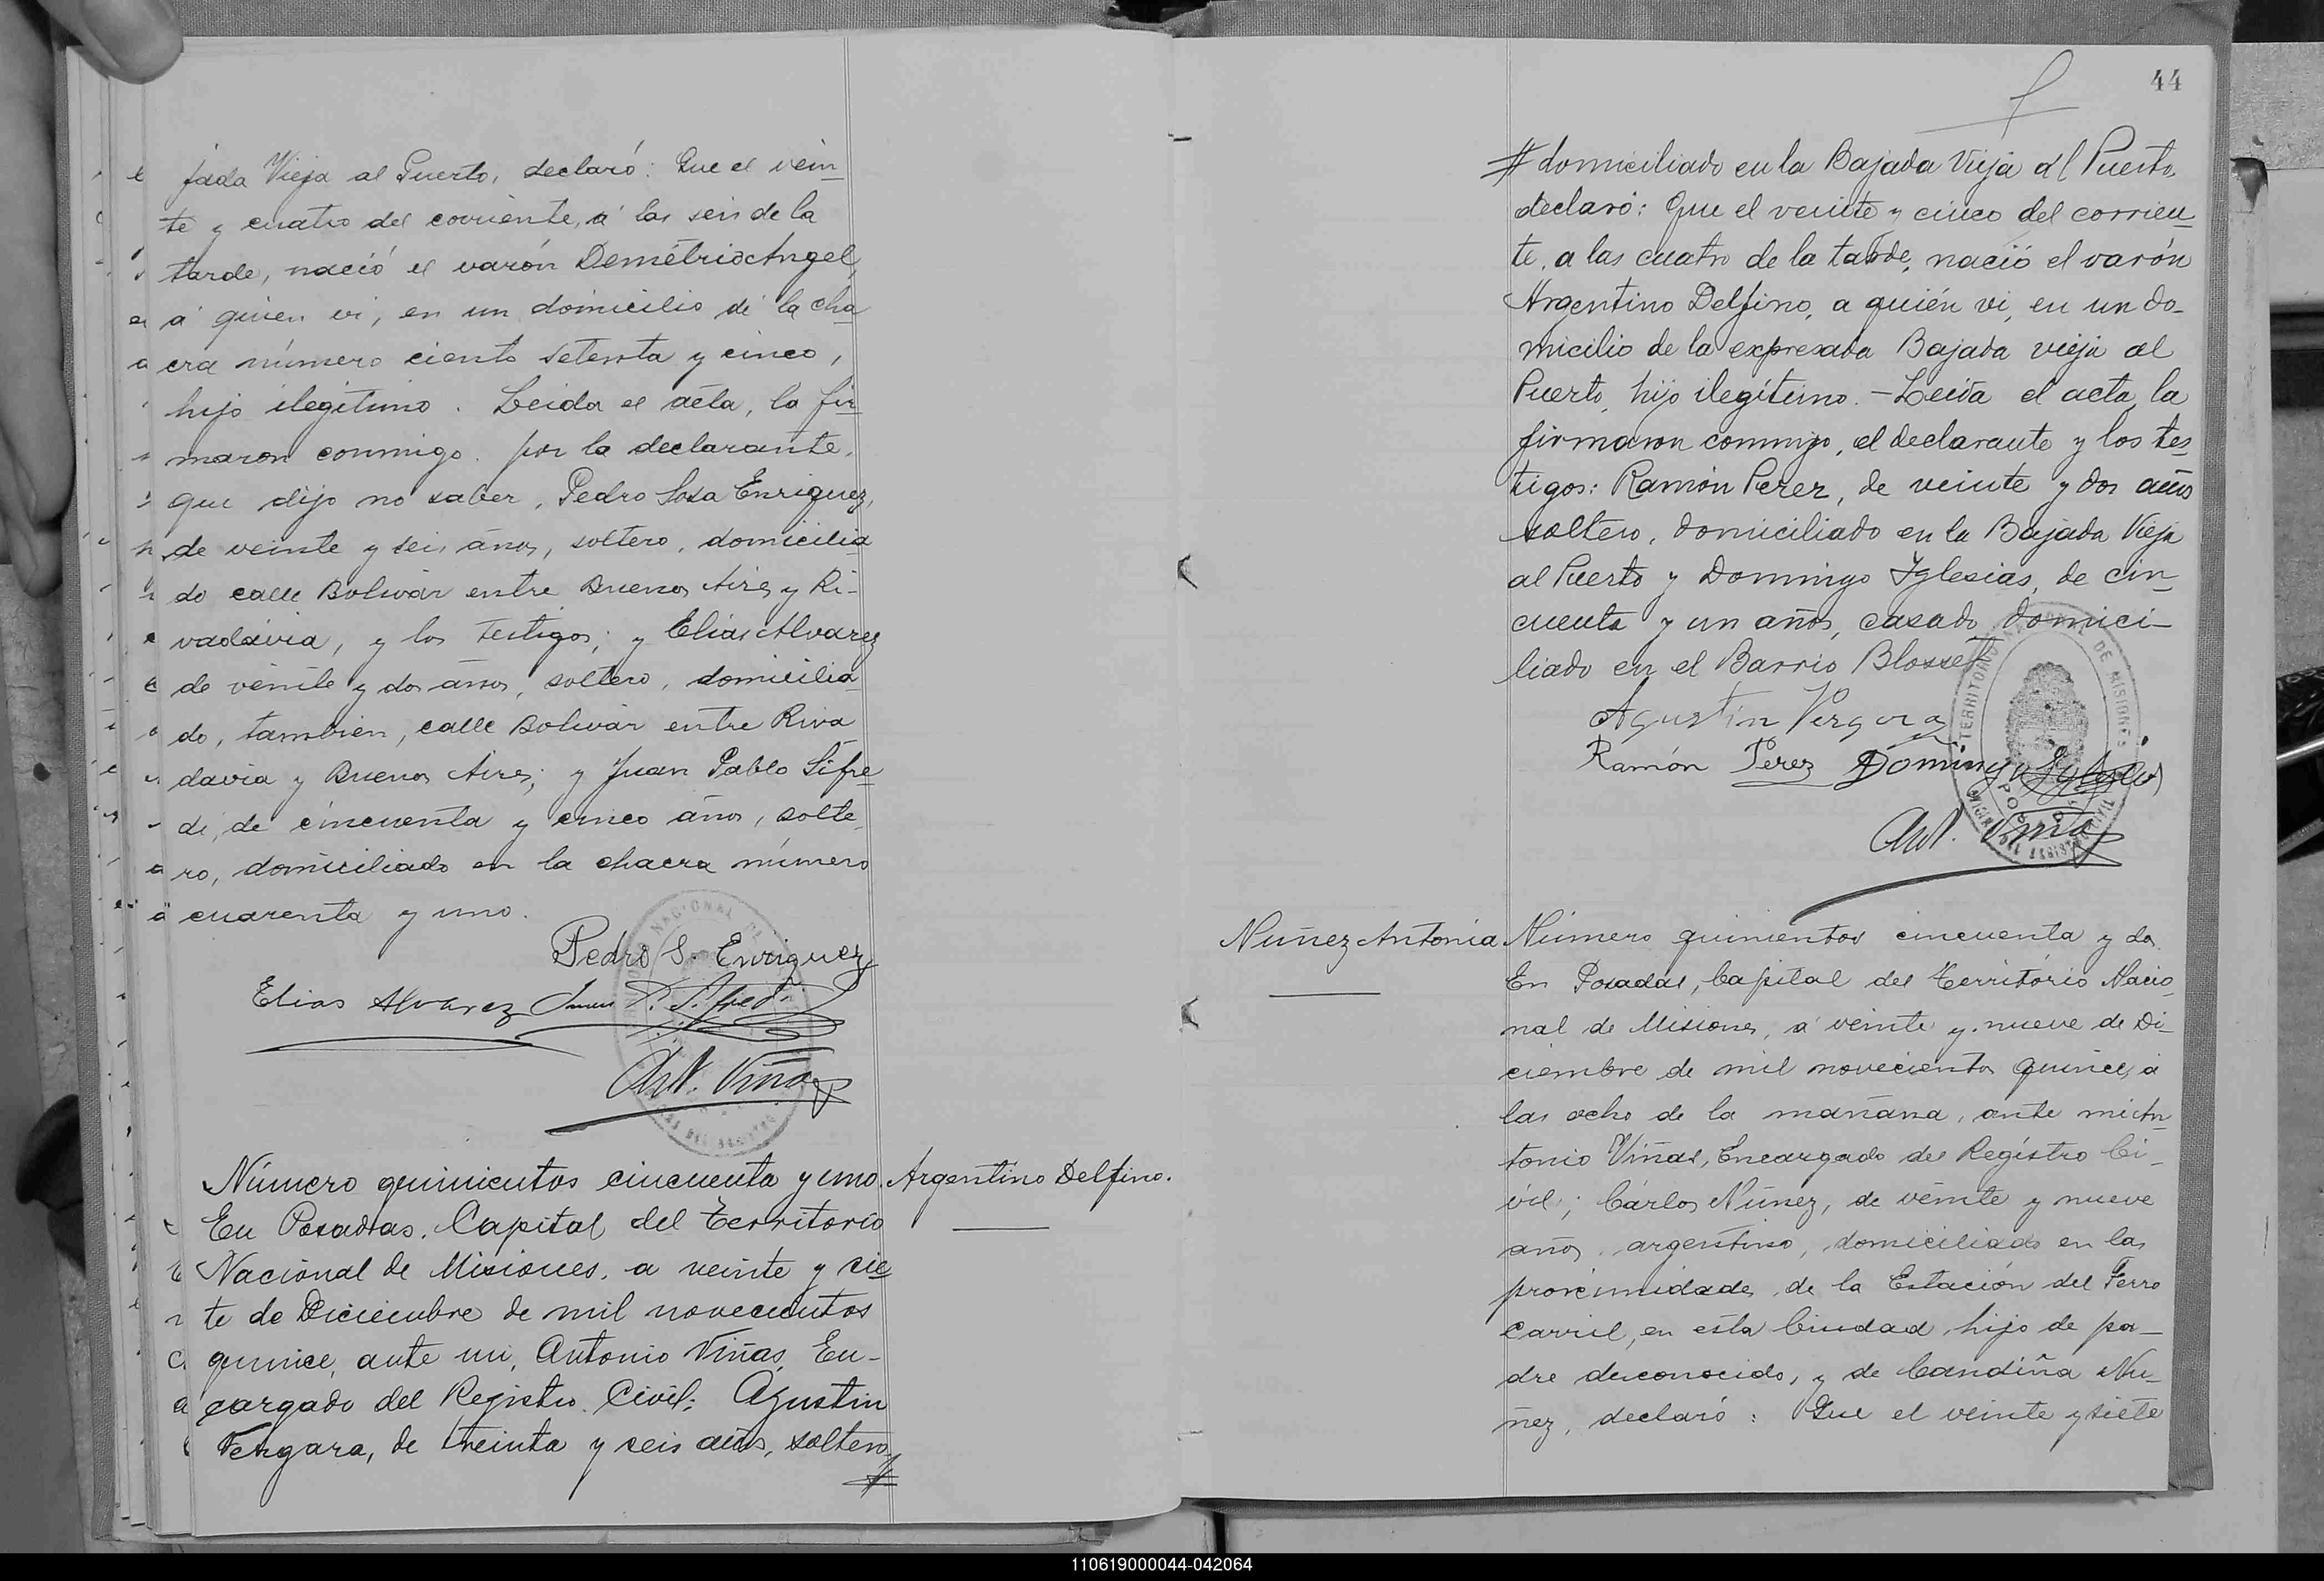 jada Vieja al Puerto, declaró: Que el vein
te y cuatro del corriente, á las seis de la
tarde, nació el varón Demétrio Angel,
á quien vi, en un domicilio de la cha
cra número ciento setenta y cinco,
hijo ilegítimo. Leida el acta, la fir
maron conmigo. por la declarante,
que dijo no saber, Pedro Sosa Enriquez,
de veinte y seis años, soltero, domicilia
do calle Bolivar entre Buenos Aires y Ri-
vadavia, y los testigos; y Elias Alvarez
de veinte y dos años, soltero, domicilia
do, tambien, calle Bolivar entre Riva
davia y Buenos Aires; y Juan Pablo Sifre
di, de cincuenta y cinco años, solte
ro, domiciliado en la chacra número
cuarenta y uno.
Pedro S. Enriquez
Elias Alvarez Juan P. Sifredi
Ant. Viñas
Número quinientos cincuenta y uno. Argentino Delfino.
En Posadas, Capital del Territorio
Nacional de Misiones, a veinte y sie
te de Diciembre de mil novecientos
quince, ante mi, Antonio Viñas, En-
cargado del Registro Civil; Agustin
Vergara, de treinta y seis años, soltero,
#
44
# domiciliado en la Bajada Vieja al Puerto,
declaró: Que el veinte y cinco del corrien
te, a las cuatro de la tarde, nació el varón
Argentino Delfino, a quién vi, en un do-
micilio de la expresada Bajada vieja al
Puerto, hijo ilegítimo. - Leida el acta, la
firmaron conmigo, el declarante y los tes
tigos: Ramón Perez, de veinte y dos años
soltero, domiciliado en la Bajada Vieja
al Puerto y Domingo Iglesias, de cin-
cuenta y un años, casado, domici-
liado en el Barrio Blosset
Agustin Vergara
Ramón Perez Domingo Iglesias
Ant. Viñas
TERRITORIO NACIONAL DE MISIONES
Nuñez Antonia Número quinientos cincuenta y dos
En Posadas, Capital del Territorio Nacio
nal de Misiones, á veinte y nueve de Di-
ciembre de mil novecientos quince, á
las ocho de la mañana, ante mi An
tonio Viñas, Encargado del Registro Ci-
vil; Cárlos Nuñez, de veinte y nueve
años, argentino, domiciliado en las
proximidades de la Estación del Ferro
carril, en esta Ciudad, hijo de pa-
dre desconocido, y de Candiña Nu-
ñez, declaró: Que el veinte y siete
110619000044-042064